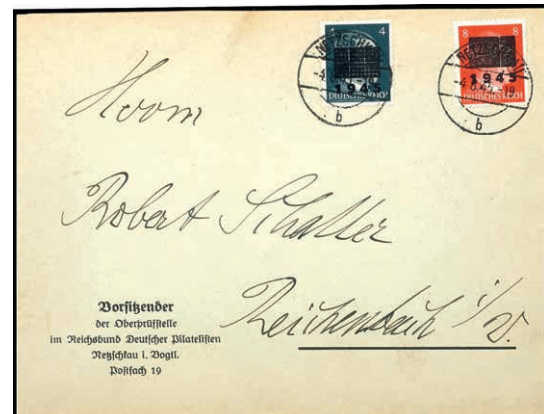 4 4
8 8
1945
1945
DEUTSCHES REICH
DEUTSCHES REICH
b
b
Herrn
Robert Schaller
Reichenbach i/V.
Vorsitzender
der Oberprüfstelle
im Reichsbund Deutscher Philatelisten
Netzschkau i. Vogtl.
Postfach 19